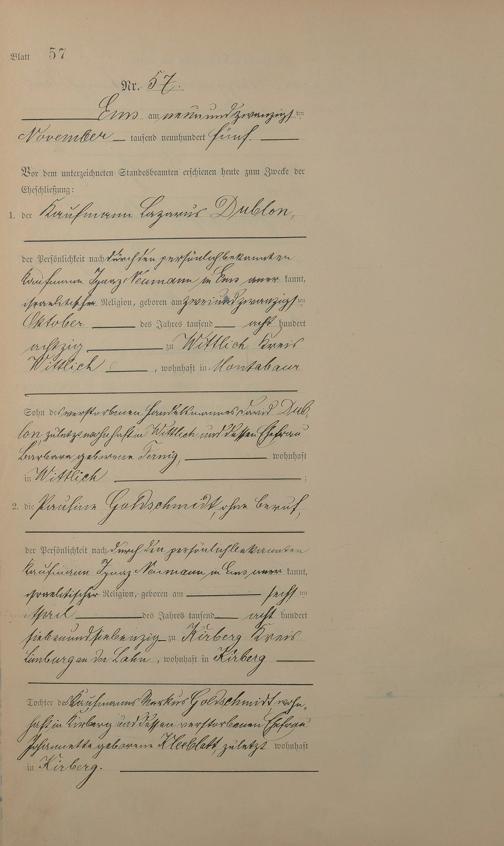 Blatt 57
Nr. 57.
Ems am neunundzwanzigsten
November tausend neunhundert fünf.
Vor dem unterzeichneten Standesbeamten erschienen heute zum Zwecke der
Eheschließung:
1. der Kaufmann Lazarus Dublon,
der Persönlichkeit nach durch den persönlich bekannten
Kaufmann Ignaz Neumann in Ems anerkannt,
israelitischer Religion, geboren am zweiundzwanzigsten
Oktober des Jahres tausend acht hundert
achtzig zu Wittlich Kreis
Wittlich, wohnhaft in Montabaur
Sohn des verstorbenen Handelsmannes David Dub-
lon, zuletzt wohnhaft in Wittlich und dessen Ehefrau
Barbara geborene wohnhaft
in Wittlich
2. die Pauline Goldschmidt, ohne Beruf,
der Persönlichkeit nach durch den persönlich bekannten
Kaufmann Ignaz Neumann in Ems anerkannt,
israelitischer Religion, geboren am sechsten
April des Jahres tausend acht hundert
siebenundsiebenzig zu Kirberg Kreis
Limburg an der Lahn, wohnhaft in Kirberg
Tochter des Kaufmanns Markus Goldschmidt, wohn-
haft in Kirberg und dessen verstorbenen Ehefrau
Johannette geborene Kleeblatt, zuletzt wohnhaft
in Kirberg.